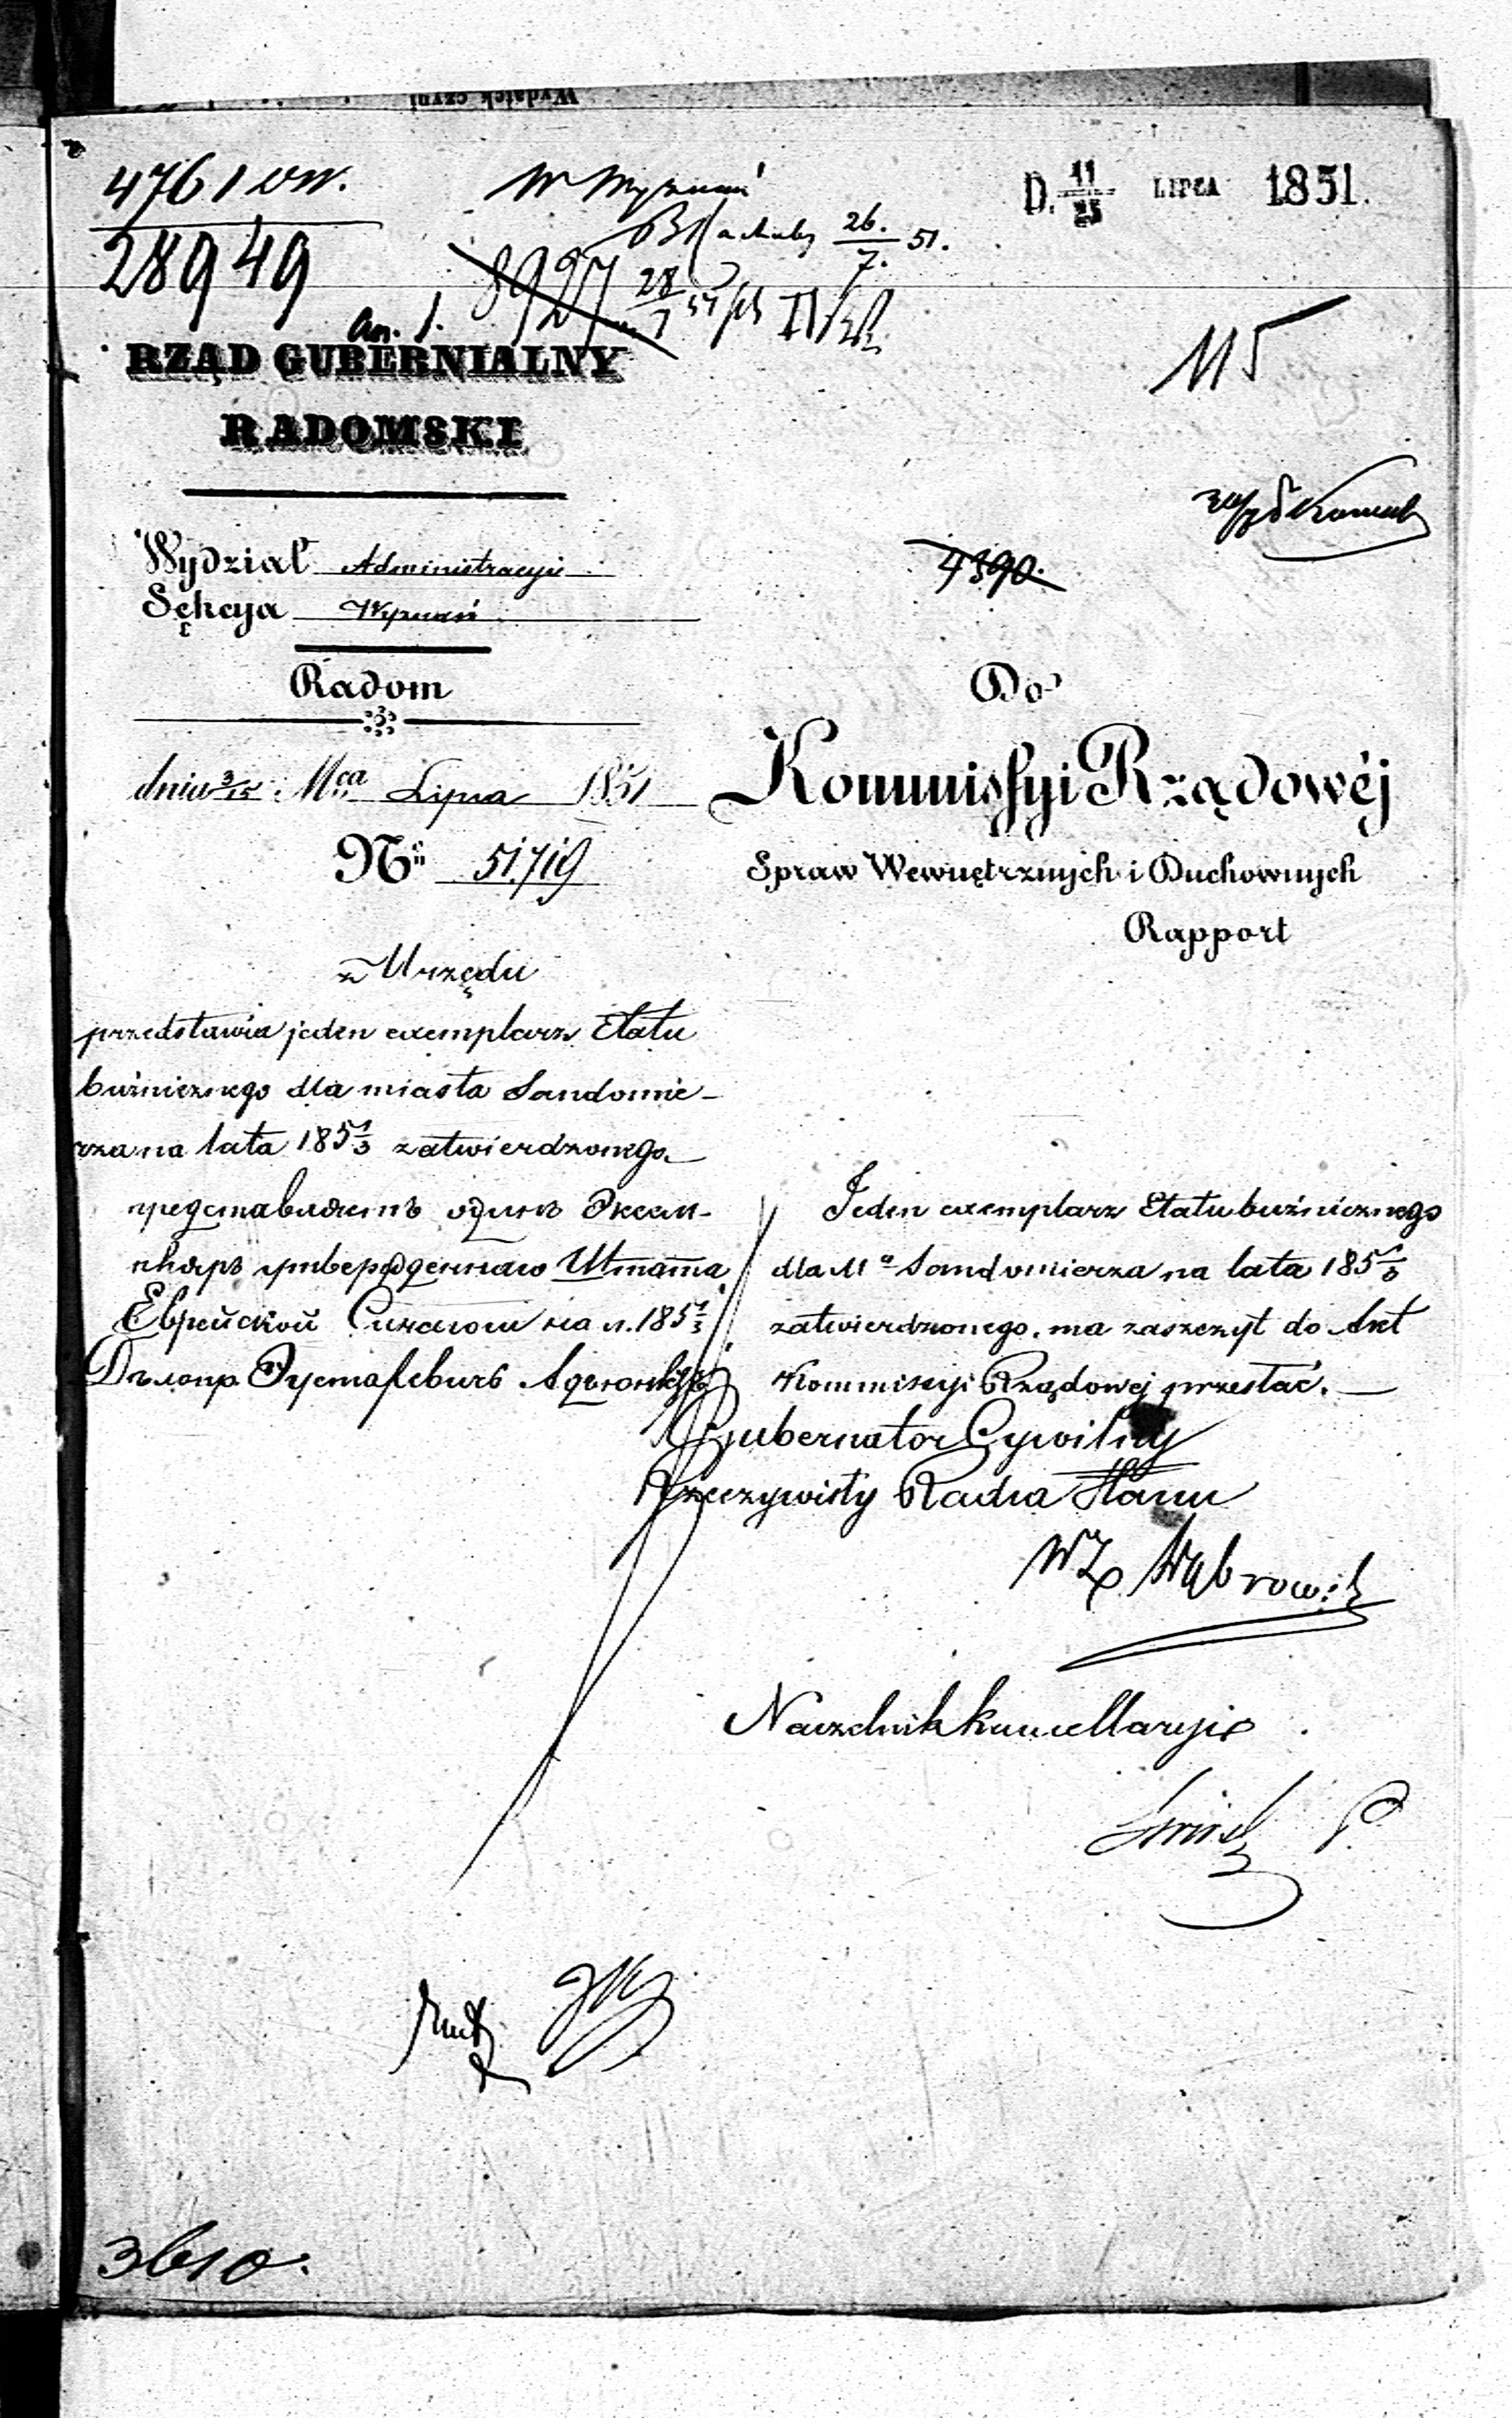 Wydatek czyni
4761
28949
D. 11/23 LIPCA 1851.
26./7. 51.
8927 28/7 51
an. 1.
115
RZĄD GUBERNIALNY
RADOMSKI
4390.
Wydział Administracyi
Sekcya Wyznań
Radom
dnia 3/15 Mca Lipca 1851
No 51,719
Do
Kommissyi Rządowéj
Spraw Wewnętrznych i Duchownych
Rapport
z Urzędu
przedstawia jeden exemplarz Etatu
bużnicznego dla miasta Sandomie-
rza na lata 185 1/3 zatwierdzonego
представляетъ одинъ Экзем-
пляръ утвержденнаго Штата
Еврейской на л. 185 1/3
Jeden exemplarz Etatu bużnicznego
dla Ma Sandomierza na lata 185 1/3
zatwierdzonego, ma zaszczyt do Akt
Kommissyi Rządowej przesłać.
Gubernator Cywilny
Rzeczywisty Radca Stanu
Naczelnik Kancellaryi
3610.